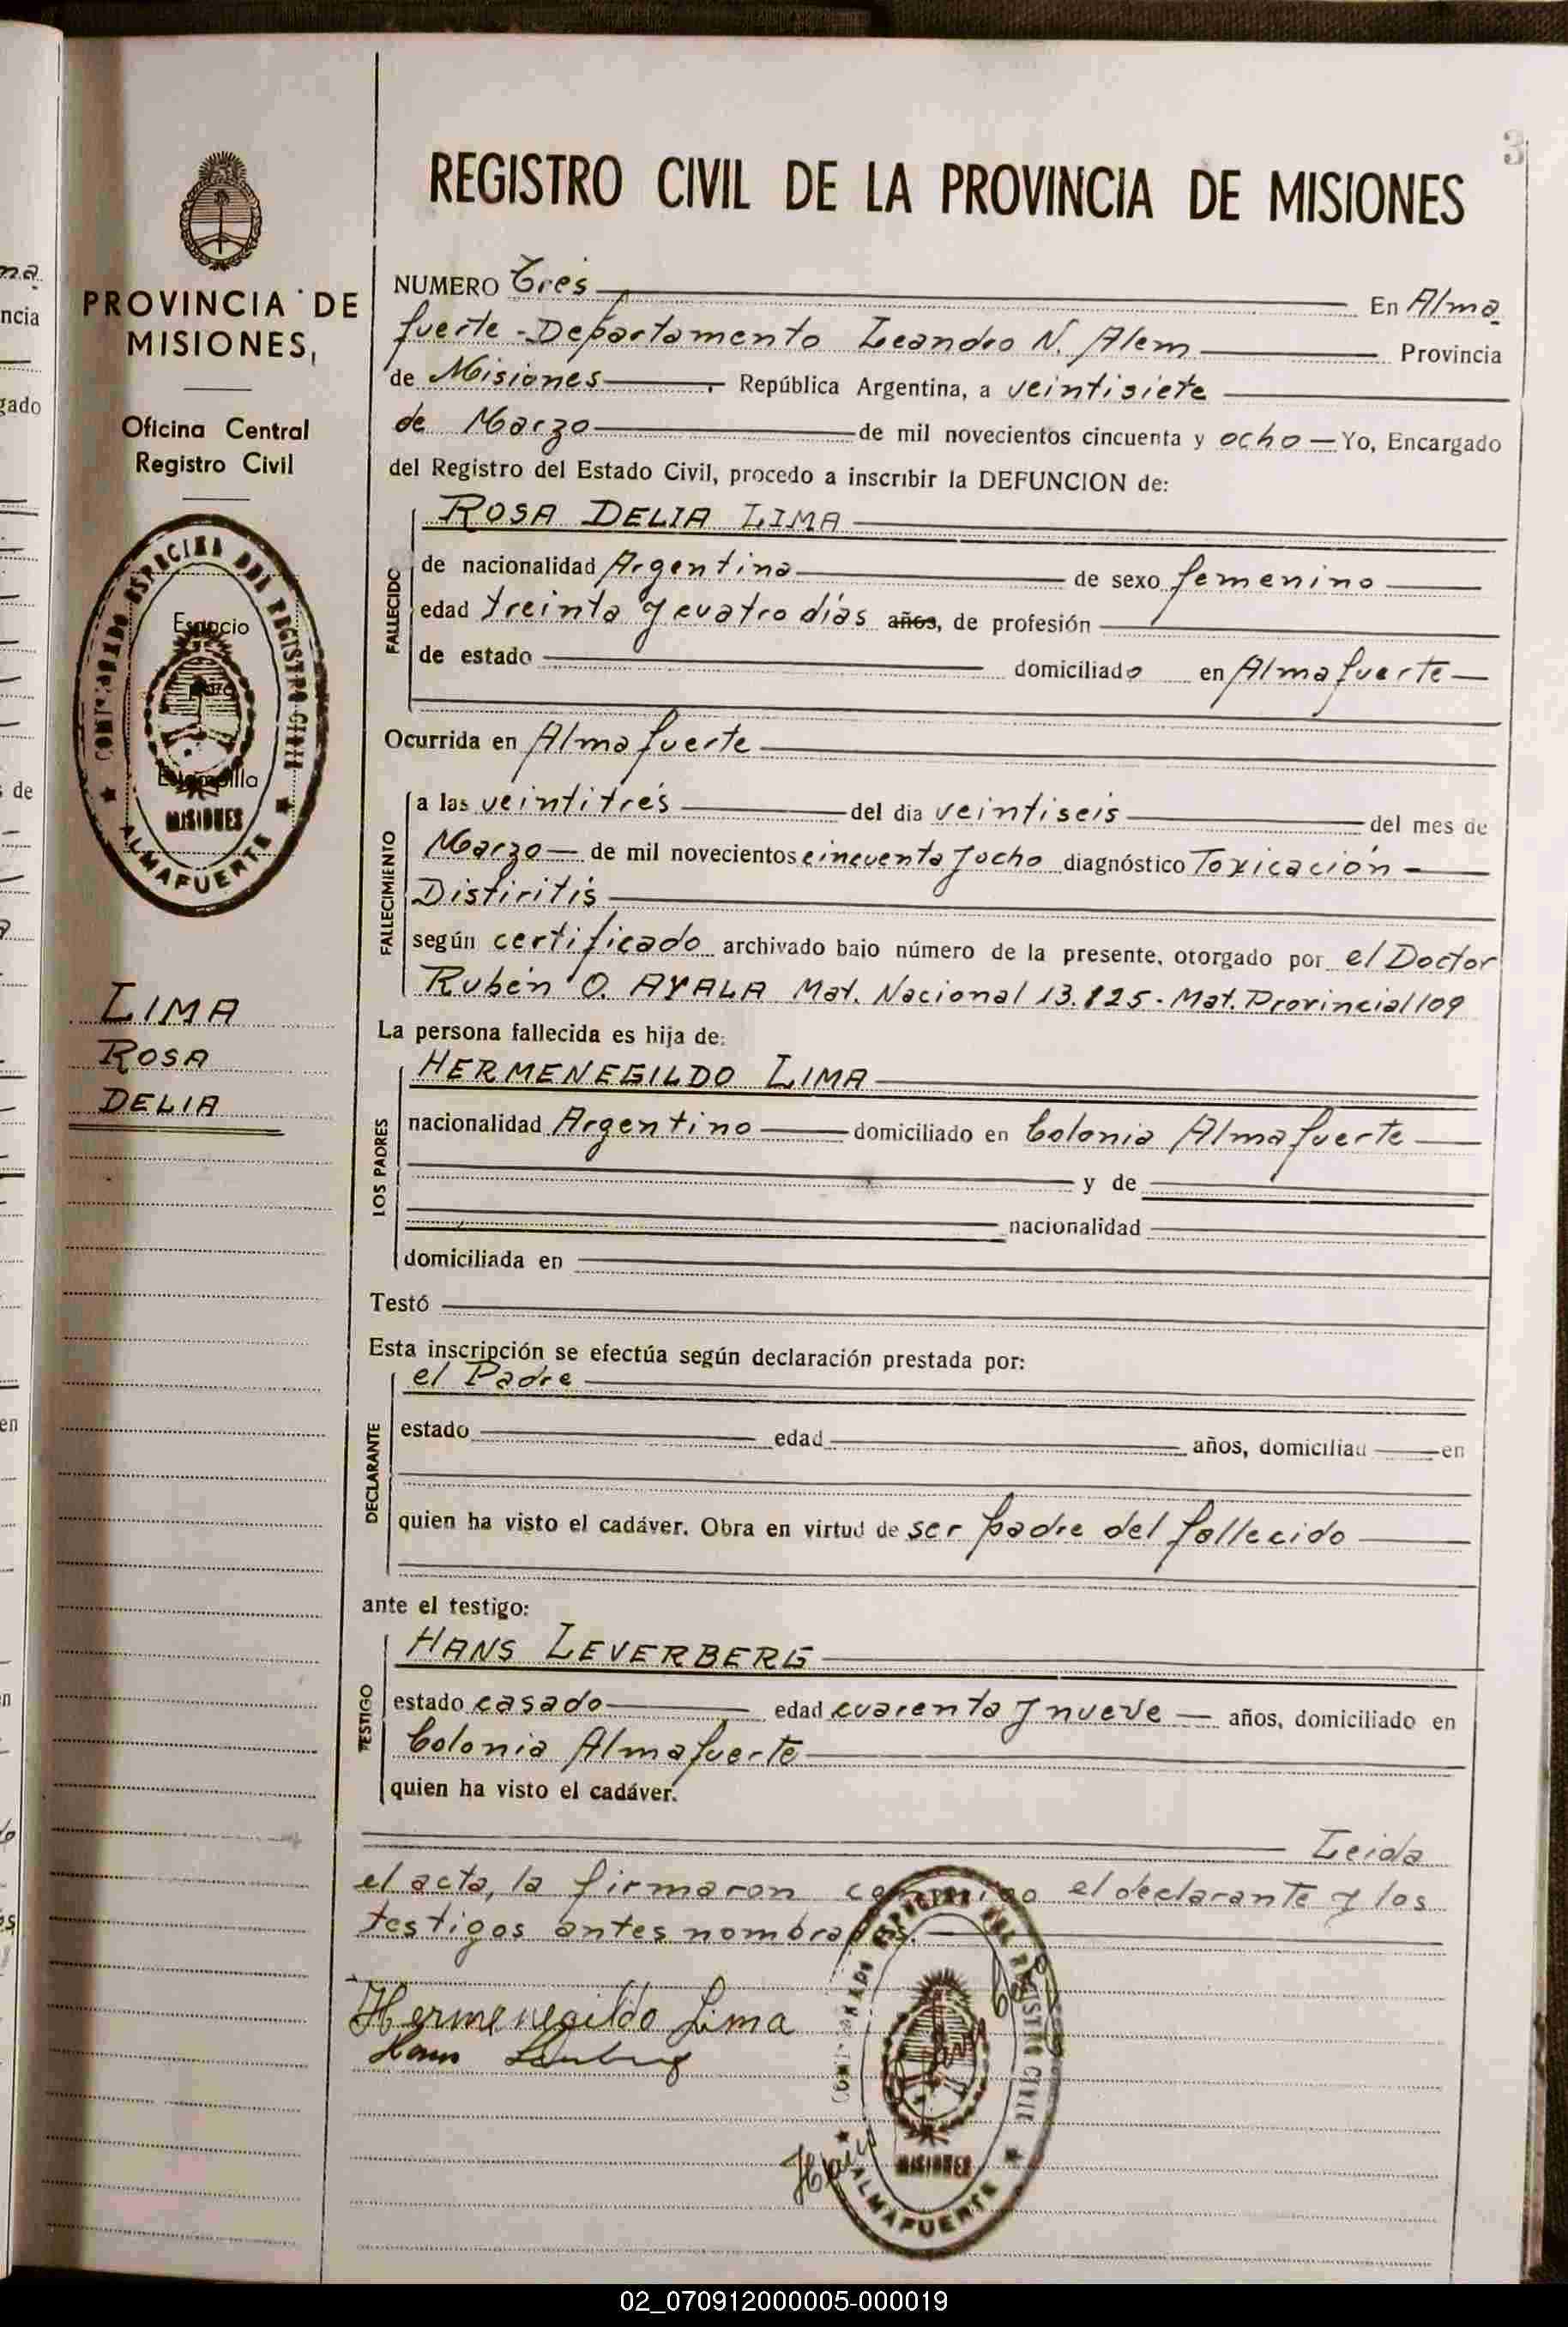 3
REGISTRO CIVIL DE LA PROVINCIA DE MISIONES
PROVINCIA DE
MISIONES,
Oficina Central
Registro Civil
Espacio
para
Estampilla
REGISTRO CIVIL
MISIONES
ALMAFUERTE
LIMA
ROSA
DELIA
NUMERO Tres En Alma
fuerte - Departamento Leandro N. Alem Provincia
de Misiones, República Argentina, a veintisiete
de Marzo de mil novecientos cincuenta y ocho Yo, Encargado
del Registro del Estado Civil, procedo a inscribir la DEFUNCION de:
FALLECIDO
ROSA DELIA LIMA
de nacionalidad Argentina de sexo femenino
edad treinta y cuatro días años, de profesión
de estado domiciliado en Almafuerte
Ocurrida en Almafuerte
FALLECIMIENTO
a las veintitrés del dia veintiseis del mes de
Marzo de mil novecientos cincuenta y ocho diagnóstico Toxicación
Distiritis
según certificado archivado bajo número de la presente, otorgado por el Doctor
Rubén O. AYALA Mat. Nacional 13.825. Mat. Provincial 109
La persona fallecida es hija de:
LOS PADRES
HERMENEGILDO LIMA
nacionalidad Argentino domiciliado en Colonia Almafuerte
y de
nacionalidad
domiciliada en
Testó
Esta inscripción se efectúa según declaración prestada por:
DECLARANTE
el Padre
estado edad años, domiciliad en
quien ha visto el cadáver. Obra en virtud de ser padre del fallecido
ante el testigo:
TESTIGO
HANS LEVERBERG
estado casado edad cuarenta y nueve años, domiciliado en
Colonia Almafuerte
quien ha visto el cadáver.
Leida
el acta, la firmaron conmigo el declarante y los
testigos antes nombrados.
Hermenegildo Lima
MISIONES
ALMAFUERTE
02_070912000005-000019